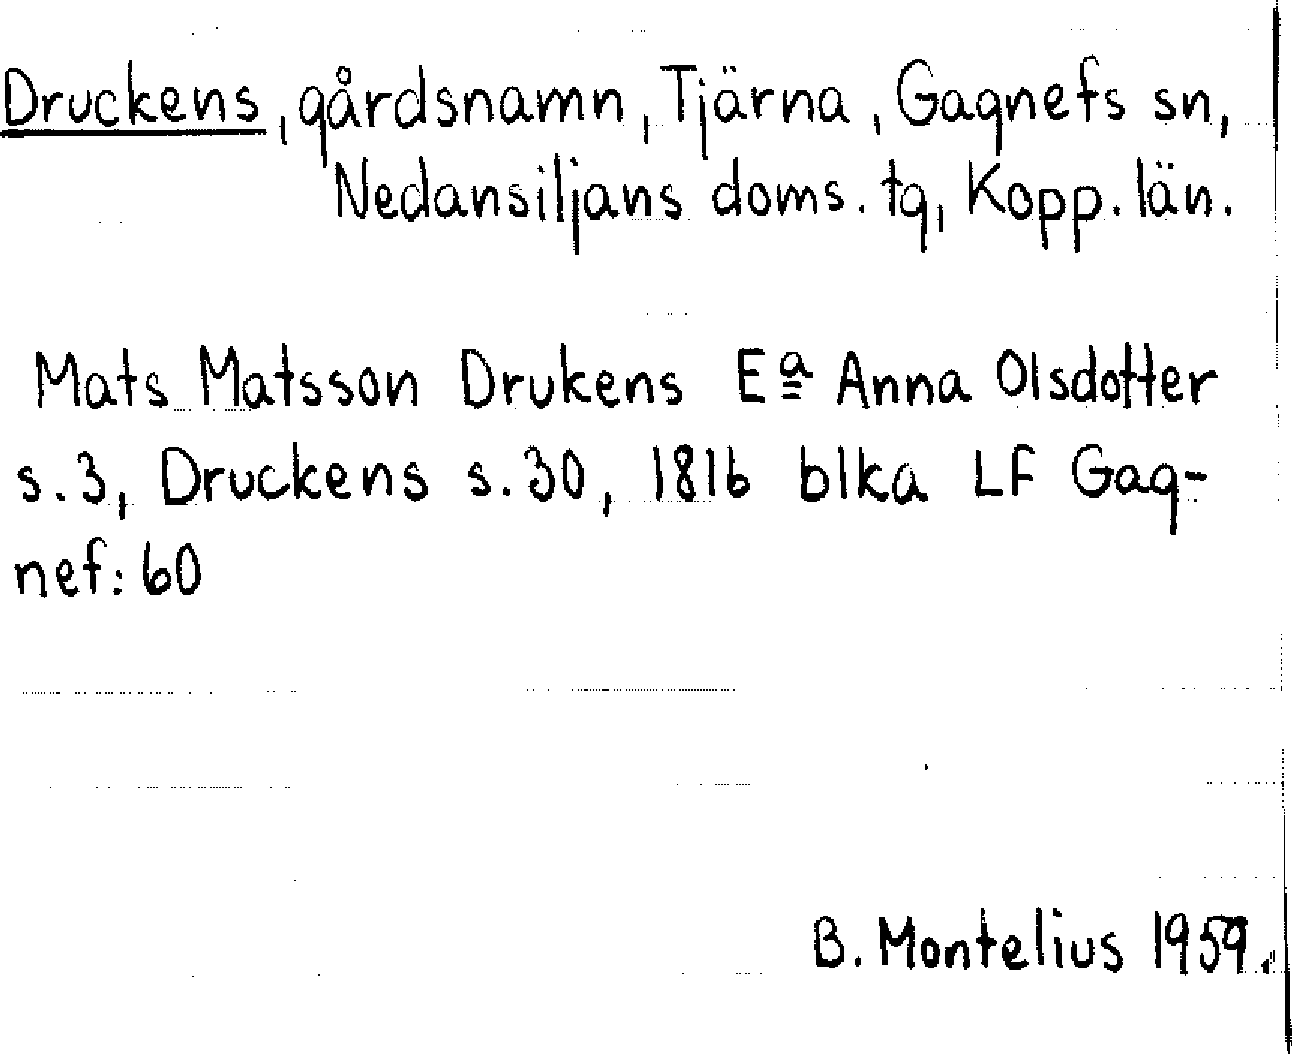 Druckens, gårdsnamn, Tjärna, Gagnefs sn,
Nedansiljans doms. tg, Kopp. län.
Mats Matsson Drukens Eª Anna Olsdotter
s. 3, Druckens s. 30, 1816 blka LF Gag-
nef: 60
B. Montelius 1959.